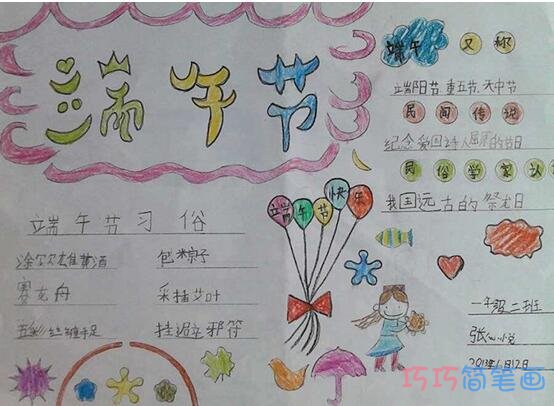 端午节
端午 又称
端阳节、重五节、天中节
民间传说
纪念爱国诗人屈原的节日
民俗学家认
我国远古的祭龙日
端午节习俗
包粽子
赛龙舟 采挂艾叶
五彩丝缠手足 挂避邪符
端午节快乐
一年级二班
2013年6月12日
巧巧简笔画